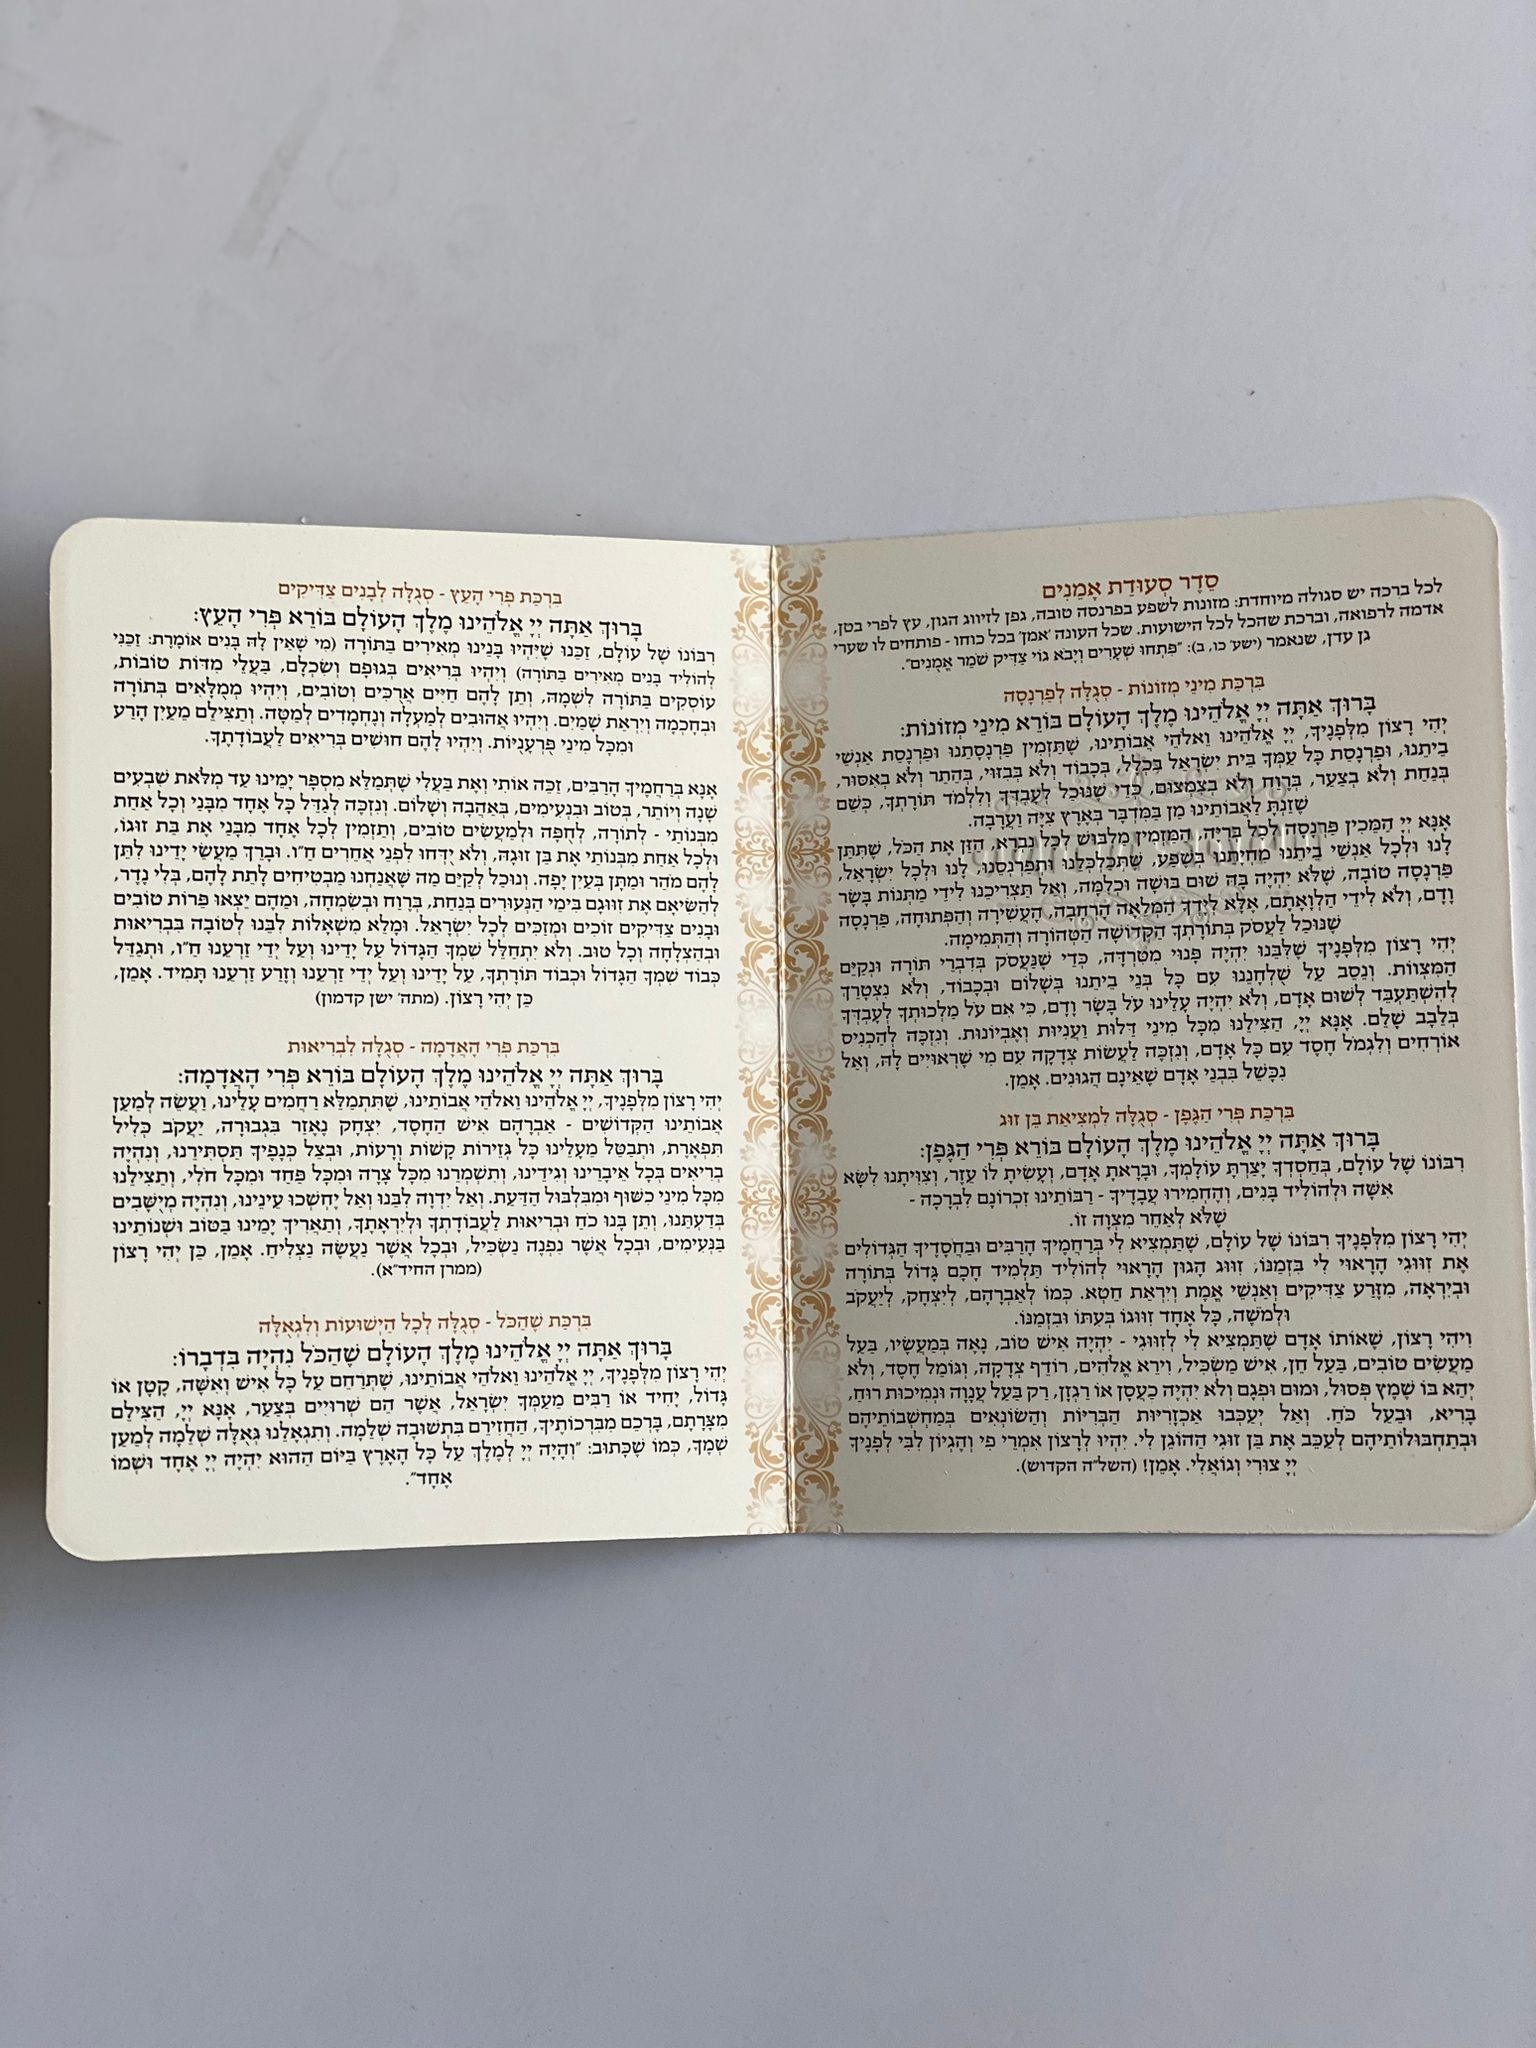 סֵדֶר סְעוּדַת אֲמֵנִים
לכל ברכה יש סגולה מיוחדת: מזונות לשפע בפרנסה טובה, גפן לזיווג הגון, עץ לפרי בטן,
אדמה לרפואה, וברכת שהכל לכל הישועות. שכל העונה 'אמן' בכל כוחו - פותחים לו שערי
גן עדן, שנאמר (ישע' כו, ב): "פִּתְחוּ שְׁעָרִים וְיָבֹא גוֹי צַדִּיק שֹׁמֵר אֱמֻנִים".
בִּרְכַּת מִינֵי מְזוֹנוֹת - סְגֻלָּה לְפַרְנָסָה
בָּרוּךְ אַתָּה יְיָ אֱלֹהֵינוּ מֶלֶךְ הָעוֹלָם בּוֹרֵא מִינֵי מְזוֹנוֹת:
יְהִי רָצוֹן מִלְּפָנֶיךָ, יְיָ אֱלֹהֵינוּ וֵאלֹהֵי אֲבוֹתֵינוּ, שֶׁתַּזְמִין פַּרְנָסָתֵנוּ וּפַרְנָסַת אַנְשֵׁי
בֵיתֵנוּ, וּפַרְנָסַת כָּל עַמְּךָ בֵּית יִשְׂרָאֵל בִּכְלָל, בְּכָבוֹד וְלֹא בְּבִזּוּי, בְּהֶתֵּר וְלֹא בְּאִסּוּר,
בְּנַחַת וְלֹא בְצַעַר, בְּרֶוַח וְלֹא בְצִמְצוּם, כְּדֵי שֶׁנּוּכַל לְעָבְדְּךָ וְלִלְמֹד תּוֹרָתְךָ, כְּשֵׁם
שֶׁזַּנְתָּ לַאֲבוֹתֵינוּ מָן בַּמִּדְבָּר בְּאֶרֶץ צִיָּה וַעֲרָבָה.
אָנָּא יְיָ הַמֵּכִין פַּרְנָסָה לְכָל בְּרִיָּה, הַמַּזְמִין מַלְבּוּשׁ לְכָל נִבְרָא, הַזָּן אֶת הַכֹּל, שֶׁתִּתֵּן
לָנוּ וּלְכָל אַנְשֵׁי בֵיתֵנוּ מִחְיָתֵנוּ בְּשֶׁפַע, שֶׁתְּכַלְכְּלֵנוּ וּתְפַרְנְסֵנוּ, לָנוּ וּלְכָל יִשְׂרָאֵל,
פַּרְנָסָה טוֹבָה, שֶׁלֹּא יִהְיֶה בָּהּ שׁוּם בּוּשָׁה וּכְלִמָּה, וְאַל תַּצְרִיכֵנוּ לִידֵי מַתְּנוֹת בָּשָׂר
וָדָם, וְלֹא לִידֵי הַלְוָאָתָם, אֶלָּא לְיָדְךָ הַמְּלֵאָה הָרְחָבָה, הָעֲשִׁירָה וְהַפְּתוּחָה, פַּרְנָסָה
שֶׁנּוּכַל לַעֲסֹק בְּתוֹרָתְךָ הַקְּדוֹשָׁה הַטְּהוֹרָה וְהַתְּמִימָה.
יְהִי רָצוֹן מִלְּפָנֶיךָ שֶׁלִּבֵּנוּ יִהְיֶה פָּנוּי מִטִּרְדָּה, כְּדֵי שֶׁנַּעֲסֹק בְּדִבְרֵי תוֹרָה וּנְקַיֵּם
הַמִּצְווֹת. וְנֵסֵב עַל שֻׁלְחָנֵנוּ עִם כָּל בְּנֵי בֵיתֵנוּ בְּשָׁלוֹם וּבְכָבוֹד, וְלֹא נִצְטָרֵךְ
לְהִשְׁתַּעְבֵּד לְשׁוּם אָדָם, וְלֹא יִהְיֶה עָלֵינוּ עֹל בָּשָׂר וָדָם, כִּי אִם עֹל מַלְכוּתְךָ לְעָבְדְּךָ
בְּלֵבָב שָׁלֵם. אָנָּא יְיָ, הַצִּילֵנוּ מִכָּל מִינֵי דַלּוּת וַעֲנִיּוּת וְאֶבְיוֹנוּת. וְנִזְכֶּה לְהַכְנִיס
אוֹרְחִים וְלִגְמֹל חֶסֶד עִם כָּל אָדָם, וְנִזְכֶּה לַעֲשׂוֹת צְדָקָה עִם מִי שֶׁרְאוּיִים לָהּ, וְאַל
נִכָּשֵׁל בִּבְנֵי אָדָם שֶׁאֵינָם הֲגוּנִים. אָמֵן.
בִּרְכַּת פְּרִי הַגֶּפֶן - סְגֻלָּה לִמְצִיאַת בֶּן זוּג
בָּרוּךְ אַתָּה יְיָ אֱלֹהֵינוּ מֶלֶךְ הָעוֹלָם בּוֹרֵא פְּרִי הַגֶּפֶן:
רִבּוֹנוֹ שֶׁל עוֹלָם, בְּחַסְדְּךָ יָצַרְתָּ עוֹלָמְךָ, וּבָרָאתָ אָדָם, וְעָשִׂיתָ לוֹ עֵזֶר, וְצִוִּיתָנוּ לִשָּׂא
אִשָּׁה וּלְהוֹלִיד בָּנִים, וְהֶחְמִירוּ עֲבָדֶיךָ - רַבּוֹתֵינוּ זִכְרוֹנָם לִבְרָכָה -
שֶׁלֹּא לְאַחֵר מִצְוָה זוֹ.
יְהִי רָצוֹן מִלְּפָנֶיךָ רִבּוֹנוֹ שֶׁל עוֹלָם, שֶׁתַּמְצִיא לִי בְּרַחֲמֶיךָ הָרַבִּים וּבַחֲסָדֶיךָ הַגְּדוֹלִים
אֶת זִוּוּגִי הָרָאוּי לִי בִּזְמַנּוֹ; זִוּוּג הָגוּן הָרָאוּי לְהוֹלִיד תַּלְמִיד חָכָם גָּדוֹל בְּתוֹרָה
וּבְיִרְאָה, מִזֶּרַע צַדִּיקִים וְאַנְשֵׁי אֱמֶת וְיִרְאַת חֵטְא. כְּמוֹ לְאַבְרָהָם, לְיִצְחָק, לְיַעֲקֹב
וּלְמֹשֶׁה, כָּל אֶחָד זִוּוּגוֹ בְּעִתּוֹ וּבִזְמַנּוֹ.
וִיהִי רָצוֹן, שֶׁאוֹתוֹ אָדָם שֶׁתַּמְצִיא לִי לְזִוּוּגִי - יִהְיֶה אִישׁ טוֹב, נָאֶה בְּמַעֲשָׂיו, בַּעַל
מַעֲשִׂים טוֹבִים, בַּעַל חֵן, אִישׁ מַשְׂכִּיל, וִירֵא אֱלֹהִים, רוֹדֵף צְדָקָה, וְגוֹמֵל חֶסֶד, וְלֹא
יְהֵא בוֹ שֶׁמֶץ פְּסוּל, וּמוּם וּפְגָם וְלֹא יִהְיֶה כַעֲסָן אוֹ רַגְזָן, רַק בַּעַל עֲנָוָה וּנְמִיכוּת רוּחַ,
בָּרִיא, וּבַעַל כֹּחַ. וְאַל יְעַכְּבוּ אַכְזָרִיּוּת הַבְּרִיּוֹת וְהַשּׂוֹנְאִים בְּמַחְשְׁבוֹתֵיהֶם
וּבְתַחְבּוּלוֹתֵיהֶם לְעַכֵּב אֶת בֶּן זוּגִי הַהוֹגֵן לִי. יִהְיוּ לְרָצוֹן אִמְרֵי פִי וְהֶגְיוֹן לִבִּי לְפָנֶיךָ
יְיָ צוּרִי וְגוֹאֲלִי. אָמֵן! (השל"ה הקדוש).
בִּרְכַּת פְּרִי הָעֵץ - סְגֻלָּה לְבָנִים צַדִּיקִים
בָּרוּךְ אַתָּה יְיָ אֱלֹהֵינוּ מֶלֶךְ הָעוֹלָם בּוֹרֵא פְּרִי הָעֵץ:
רִבּוֹנוֹ שֶׁל עוֹלָם, זַכֵּנוּ שֶׁיִּהְיוּ בָּנֵינוּ מְאִירִים בַּתּוֹרָה (מִי שֶׁאֵין לָהּ בָּנִים אוֹמֶרֶת: זַכֵּנִי
לְהוֹלִיד בָּנִים מְאִירִים בַּתּוֹרָה) וְיִהְיוּ בְּרִיאִים בְּגוּפָם וְשִׂכְלָם, בַּעֲלֵי מִדּוֹת טוֹבוֹת,
עוֹסְקִים בַּתּוֹרָה לִשְׁמָהּ, וְתֵן לָהֶם חַיִּים אֲרֻכִּים וְטוֹבִים, וְיִהְיוּ מְמֻלָּאִים בְּתוֹרָה
וּבְחָכְמָה וְיִרְאַת שָׁמַיִם. וְיִהְיוּ אֲהוּבִים לְמַעְלָה וְנֶחְמָדִים לְמַטָּה. וְתַצִּילֵם מֵעַיִן הָרַע
וּמִכָּל מִינֵי פֻּרְעָנֻיּוֹת. וְיִהְיוּ לָהֶם חוּשִׁים בְּרִיאִים לַעֲבוֹדָתֶךָ.
אָנָּא בְּרַחֲמֶיךָ הָרַבִּים, זַכֵּה אוֹתִי וְאֶת בַּעֲלִי שֶׁתְּמַלֵּא מִסְפַּר יָמֵינוּ עַד מְלֹאת שִׁבְעִים
שָׁנָה וְיוֹתֵר, בְּטוֹב וּבִנְעִימִים, בְּאַהֲבָה וְשָׁלוֹם. וְנִזְכֶּה לְגַדֵּל כָּל אֶחָד מִבָּנַי וְכָל אַחַת
מִבְּנוֹתַי - לְתוֹרָה, לְחֻפָּה וּלְמַעֲשִׂים טוֹבִים, וְתַזְמִין לְכָל אֶחָד מִבָּנַי אֶת בַּת זוּגוֹ,
וּלְכָל אַחַת מִבְּנוֹתַי אֶת בֶּן זוּגָהּ, וְלֹא יִדָּחוּ לִפְנֵי אֲחֵרִים ח"ו. וּבָרֵךְ מַעֲשֵׂי יָדֵינוּ לִתֵּן
לָהֶם מֹהַר וּמַתָּן בְּעַיִן יָפָה. וְנוּכַל לְקַיֵּם מַה שֶּׁאֲנַחְנוּ מַבְטִיחִים לָתֵת לָהֶם, בְּלִי נֶדֶר,
לְהַשִּׂיאָם אֶת זִוּוּגָם בִּימֵי הַנְּעוּרִים בְּנַחַת, בְּרֶוַח וּבְשִׂמְחָה, וּמֵהֶם יֵצְאוּ פֵּרוֹת טוֹבִים
וּבָנִים צַדִּיקִים זוֹכִים וּמְזַכִּים לְכָל יִשְׂרָאֵל. וּמַלֵּא מִשְׁאֲלוֹת לִבֵּנוּ לְטוֹבָה בִּבְרִיאוּת
וּבְהַצְלָחָה וְכָל טוּב. וְלֹא יִתְחַלֵּל שִׁמְךָ הַגָּדוֹל עַל יָדֵינוּ וְעַל יְדֵי זַרְעֵנוּ ח"ו, וּתְגַדֵּל
כְּבוֹד שִׁמְךָ הַגָּדוֹל וּכְבוֹד תּוֹרָתְךָ, עַל יָדֵינוּ וְעַל יְדֵי זַרְעֵנוּ וְזֶרַע זַרְעֵנוּ תָּמִיד. אָמֵן,
כֵּן יְהִי רָצוֹן. (מתה' ישן קדמון)
בִּרְכַּת פְּרִי הָאֲדָמָה - סְגֻלָּה לִבְרִיאוּת
בָּרוּךְ אַתָּה יְיָ אֱלֹהֵינוּ מֶלֶךְ הָעוֹלָם בּוֹרֵא פְּרִי הָאֲדָמָה:
יְהִי רָצוֹן מִלְּפָנֶיךָ, יְיָ אֱלֹהֵינוּ וֵאלֹהֵי אֲבוֹתֵינוּ, שֶׁתִּתְמַלֵּא רַחֲמִים עָלֵינוּ, וַעֲשֵׂה לְמַעַן
אֲבוֹתֵינוּ הַקְּדוֹשִׁים - אַבְרָהָם אִישׁ הַחֶסֶד, יִצְחָק נֶאְזָר בִּגְבוּרָה, יַעֲקֹב כְּלִיל
תִּפְאֶרֶת, וּתְבַטֵּל מֵעָלֵינוּ כָּל גְּזֵירוֹת קָשׁוֹת וְרָעוֹת, וּבְצֵל כְּנָפֶיךָ תַּסְתִּירֵנוּ, וְנִהְיֶה
בְרִיאִים בְּכָל אֵיבָרֵינוּ וְגִידֵינוּ, וְתִשְׁמְרֵנוּ מִכָּל צָרָה וּמִכָּל פַּחַד וּמִכָּל חֹלִי, וְתַצִּילֵנוּ
מִכָּל מִינֵי כִשּׁוּף וּמִבִּלְבּוּל הַדַּעַת. וְאַל יִדְוֶה לִבֵּנוּ וְאַל יֶחְשְׁכוּ עֵינֵינוּ, וְנִהְיֶה מְיֻשָּׁבִים
בְּדַעְתֵּנוּ, וְתֵן בָּנוּ כֹּחַ וּבְרִיאוּת לַעֲבוֹדָתְךָ וּלְיִרְאָתֶךָ, וְתַאֲרִיךְ יָמֵינוּ בַּטּוֹב וּשְׁנוֹתֵינוּ
בַּנְּעִימִים, וּבְכָל אֲשֶׁר נִפְנֶה נַשְׂכִּיל, וּבְכָל אֲשֶׁר נַעֲשֶׂה נַצְלִיחַ. אָמֵן, כֵּן יְהִי רָצוֹן
(ממרן החיד"א).
בִּרְכַּת שֶׁהַכֹּל - סְגֻלָּה לְכָל הַיְשׁוּעוֹת וְלִגְאֻלָּה
בָּרוּךְ אַתָּה יְיָ אֱלֹהֵינוּ מֶלֶךְ הָעוֹלָם שֶׁהַכֹּל נִהְיָה בִּדְבָרוֹ:
יְהִי רָצוֹן מִלְּפָנֶיךָ, יְיָ אֱלֹהֵינוּ וֵאלֹהֵי אֲבוֹתֵינוּ, שֶׁתְּרַחֵם עַל כָּל אִישׁ וְאִשָּׁה, קָטָן אוֹ
גָּדוֹל, יָחִיד אוֹ רַבִּים מֵעַמְּךָ יִשְׂרָאֵל, אֲשֶׁר הֵם שְׁרוּיִים בְּצַעַר, אָנָּא יְיָ, הַצִּילֵם
מִצָּרָתָם, בָּרְכֵם מִבִּרְכוֹתֶיךָ, הַחֲזִירֵם בִּתְשׁוּבָה שְׁלֵמָה. וְתִגְאָלֵנוּ גְּאֻלָּה שְׁלֵמָה לְמַעַן
שְׁמֶךָ, כְּמוֹ שֶׁכָּתוּב: "וְהָיָה יְיָ לְמֶלֶךְ עַל כָּל הָאָרֶץ בַּיּוֹם הַהוּא יִהְיֶה יְיָ אֶחָד וּשְׁמוֹ
אֶחָד".